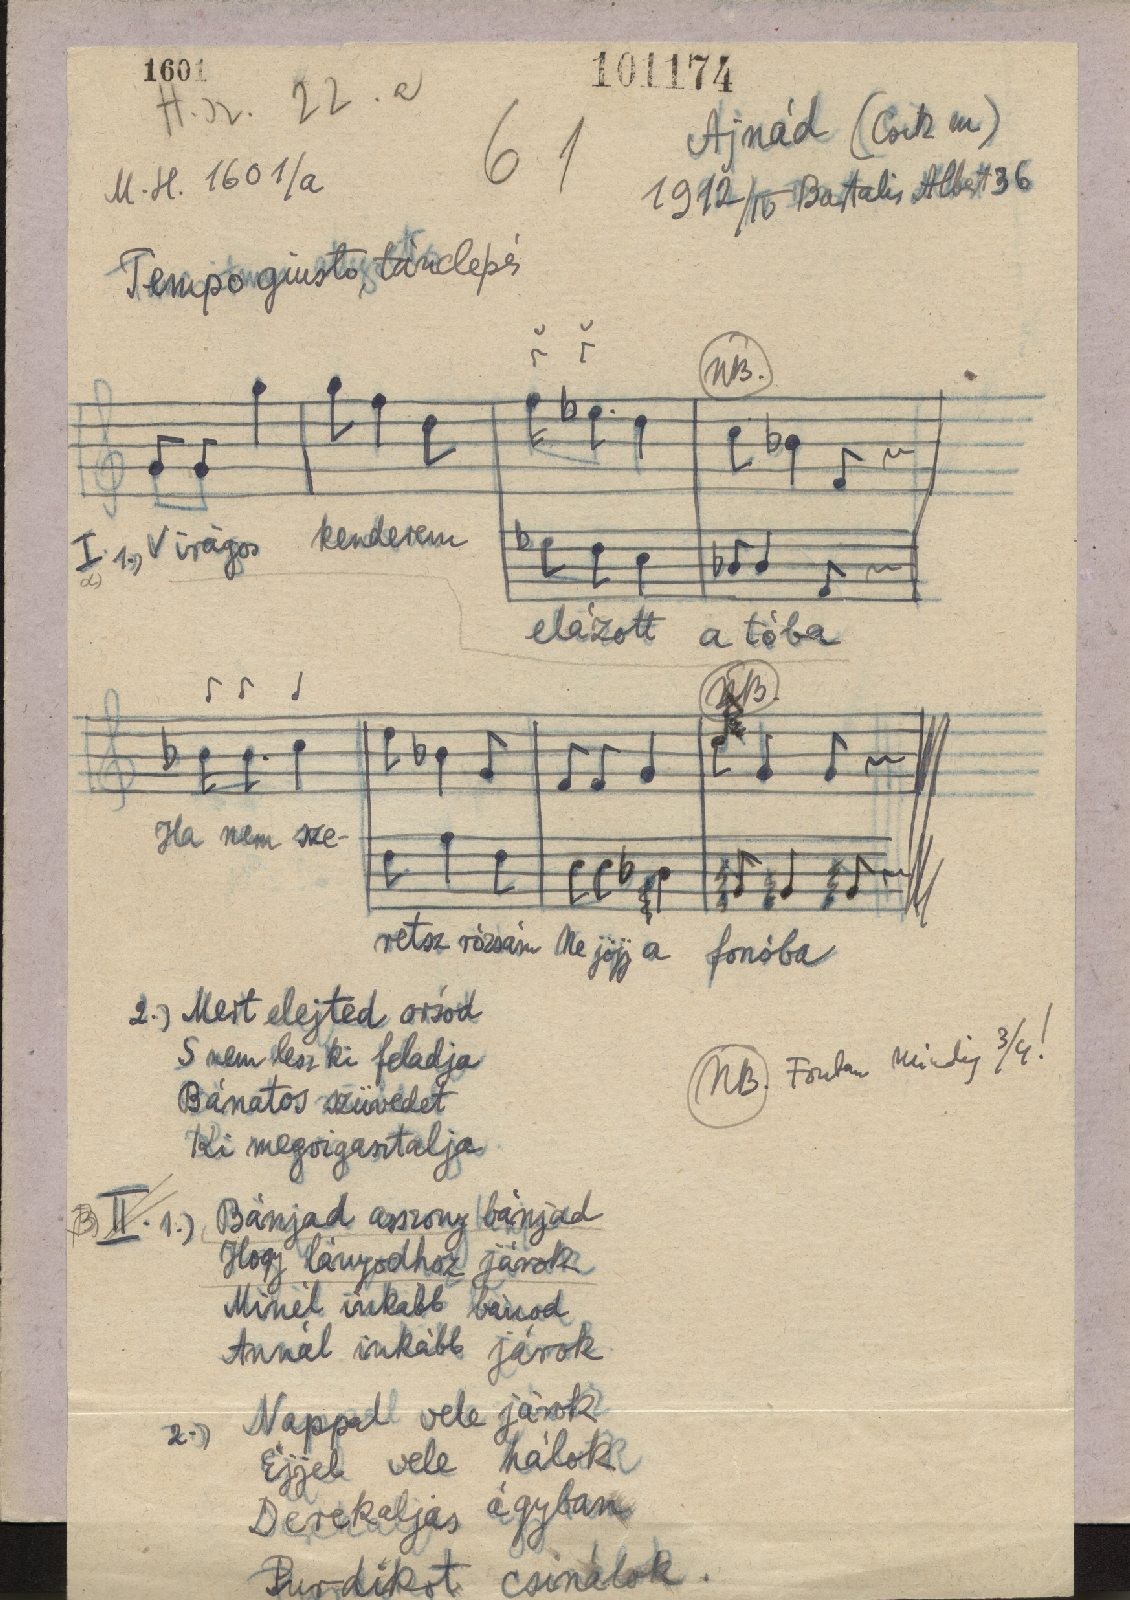 1601
101174
H.sz. 22.a
61
Ajnád (Csik m)
M.H. 1601/a
1912/IV Bartalis Albert 36
Tempo giusto, tánclépés
NB.
I. 1.) Virágos kenderem
a)
elázott a tóba
NB.
Ha nem sze-
retsz rózsám Ne jöjj a fonóba
2.) Mert elejted orsod
S nem lesz ki feladja
Bánatos szüvedet
Ki megvigasztalja
NB. mindig 3/4!
B) II. 1.) Bánjad asszony bánjad
Hogy lányodhoz járok
Minél inkább bánod
Annál inkább járok
2.) Nappal vele járok
Éjjel vele hálok
Derekaljas ágyban
Purdikot csinálok.